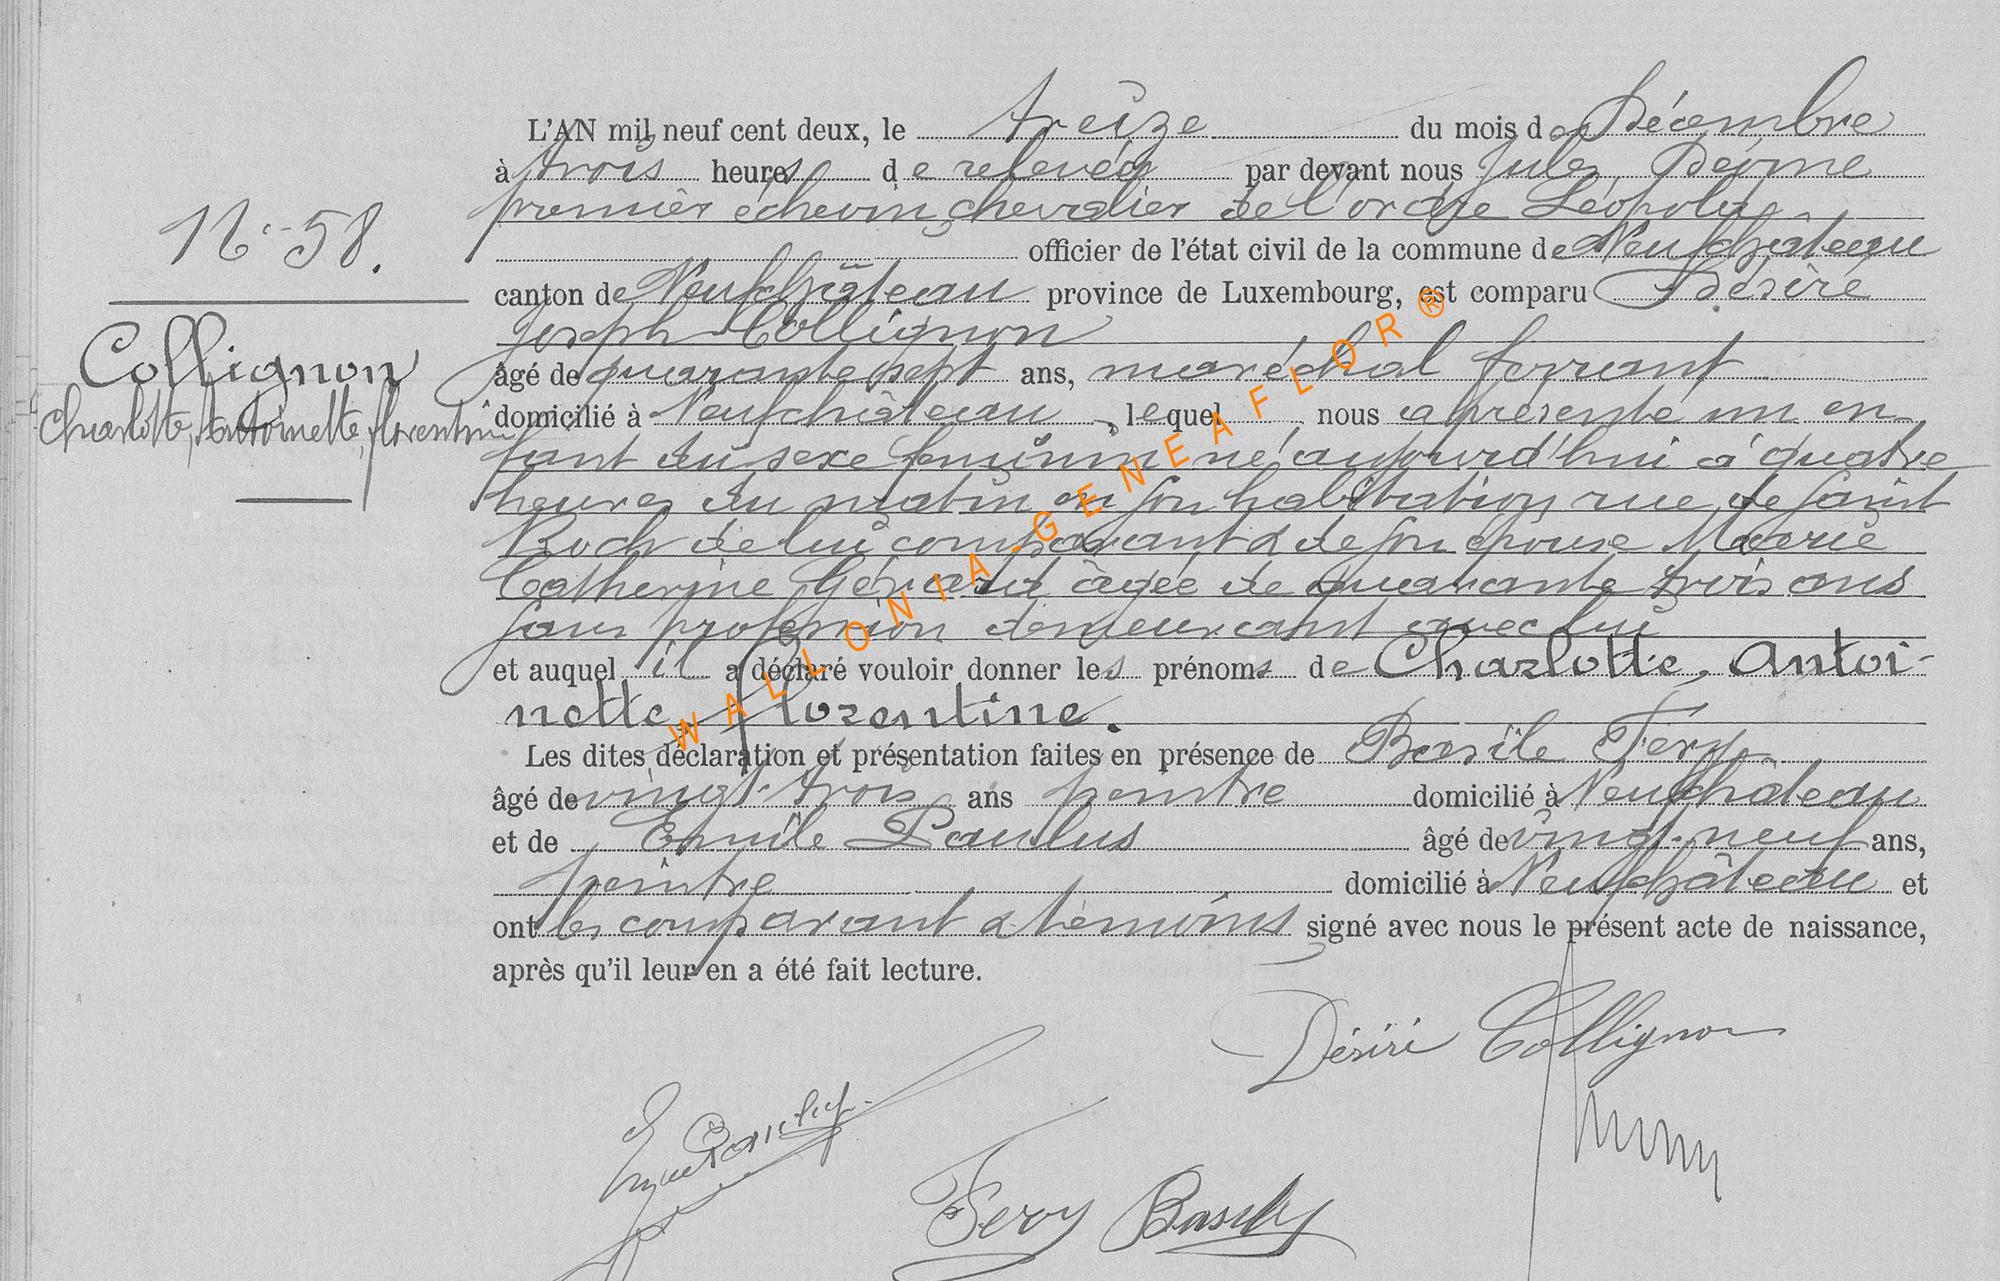 N° 58.
Collignon
Charlotte, Antoinette, florentine
L'AN mil neuf cent deux, le treize du mois de Décembre
à trois heures de relevée par devant nous Jules
premier échevin, chevalier de l'ordre Léopold
officier de l'état civil de la commune de Neufchateau
canton de Neufchâteau province de Luxembourg, est comparu Désiré
Joseph Collignon
âgé de quarante sept ans, maréchal ferrant
domicilié à Neufchâteau, lequel nous a présenté un en-
fant du sexe feminin né aujourd'hui à quatre
heures du matin en son habitation rue de Saint
Roch de lui comparant & de son épouse Marie
Catherine Gérard âgée de quarante trois ans
sans profession demeurant avec lui
et auquel il a déclaré vouloir donner les prénoms de Charlotte, Antoi-
nette, florentine.
Les dites déclaration et présentation faites en présence de Basile Fery
âgé de vingt-trois ans peintre domicilié à Neufchâteau
et de Emile Paulus âgé de vingt-neuf ans,
peintre domicilié à Neufchâteau et
ont les comparant & témoins signé avec nous le présent acte de naissance,
après qu'il leur en a été fait lecture.
Désiré Collignon
Fery Basile
WALLONIA-GENEAFLOR®